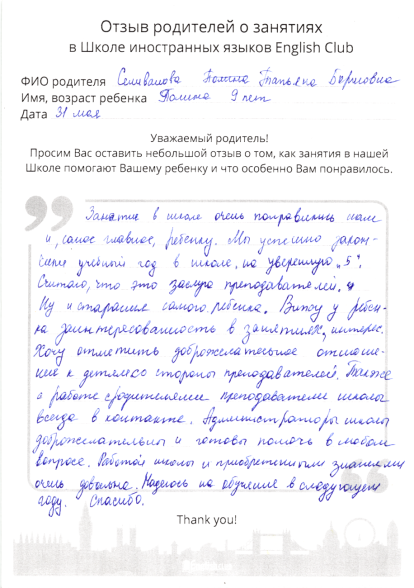 Отзыв родителей о занятиях
в Школе иностранных языков English Club
ФИО родителя Селиванова Полина Татьяна Борисовна
Имя, возраст ребенка Полина 9 лет
Дата 31 мая
Уважаемый родитель!
Просим Вас оставить небольшой отзыв о том, как занятия в нашей
Школе помогают Вашему ребенку и что особенно Вам понравилось.
Занятие в школе очень понравились нам
и, самое главное, ребенку. Мы успешно закон-
чили учебный год в школе, на уверенную „5".
Считаю, что это заслуга преподавателей.
Ну и старания самого ребенка. Вижу у ребен-
ка заинтересованность в занятиях, интерес.
Хочу отметить доброжелательное отноше-
ние к детям со стороны преподавателей. Также
в работе с родителями преподаватели школы
всегда в контакте. Администраторы школы
доброжелательны и готовы помочь в любом
вопросе. Работой школы и приобретенными знаниями
очень довольна. Надеюсь на обучение в следующем
году. Спасибо.
Thank you!